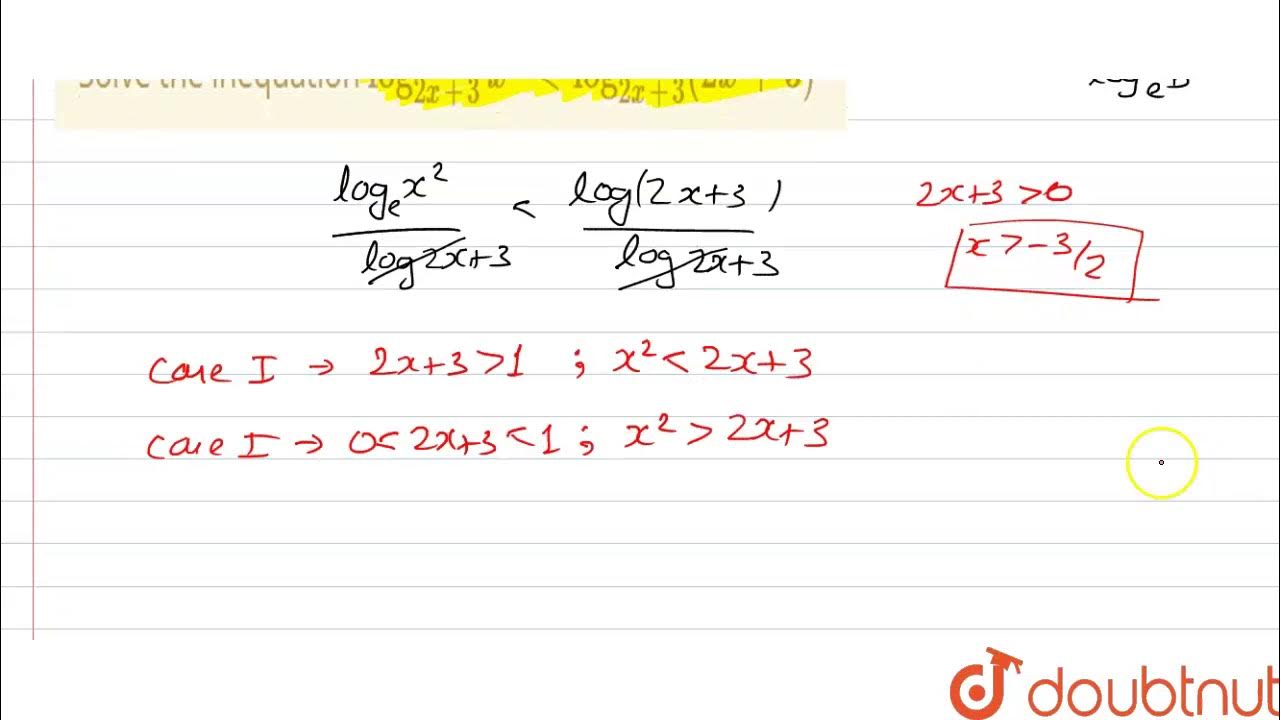 Solve the inequation log_{2x+3} x^2 < log_{2x+3}(2x + 3)
log_e x^2 / log 2x+3 < log(2x+3) / log 2x+3
2x+3 >0
x > -3/2
case I → 2x+3 >1 ; x^2 < 2x+3
case I → 0< 2x+3 <1 ; x^2 > 2x+3
doubtnut